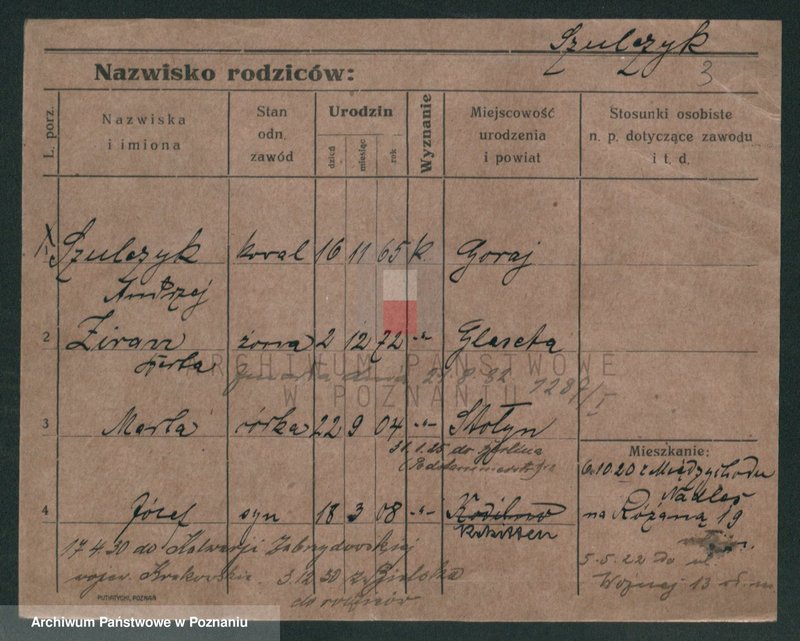 Szulczyk
3
Nazwisko rodziców:
L. porz.
Nazwiska
i imiona
Stan
odn.
zawód
Urodzin
dzień
miesiąc
rok
Wyznanie
Miejscowość
urodzenia
i powiat
Stosunki osobiste
n. p. dotyczące zawodu
i t. d.
1 Szulczyk koval 16 11 65 k. Goraj
Andrzej
2 żona 2 12 72 -"-
ARCHIWUM PAŃSTWOWE
W POZNANIU
3 Marta córka 22 9 04 -"- Stołyn
31.1.25 do
Mieszkanie:
6.10.20 z Międzychodu
4 Józef syn 18 3 08 -"-
na Różaną 19
17.4.30 do Kalwarji Zebrzydowskiej
wojew. Krakowskie. 3.12.30 z Bielska
do rodziców
5.5.22 Do ul.
13
PUTIATYCKI, POZNAŃ
Archiwum Państwowe w Poznaniu